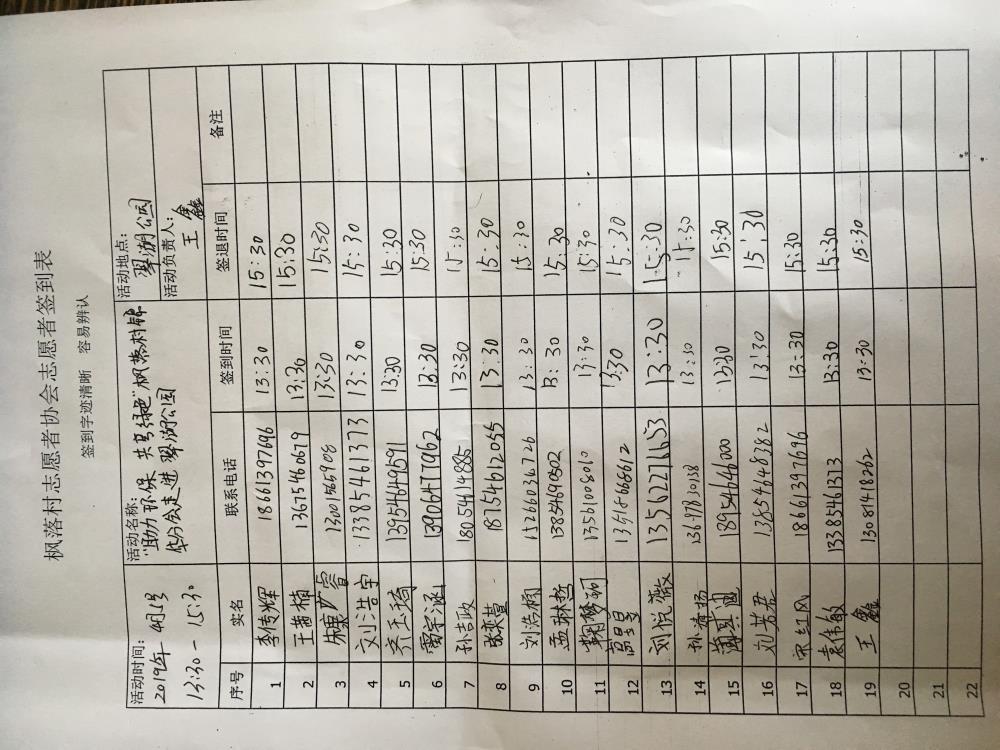 枫落村志愿者协会志愿者签到表
签到字迹清晰 容易辨认
活动时间: 2019年4月5号 13:30-15:30
活动名称: "助力环保 共享绿色"枫落村锦华分会走进翠湖公园
活动地点: 翠湖公园
活动负责人: 王鑫
序号 实名 联系电话 签到时间 签退时间 备注
1 李传辉 18661397696 13:30 15:30
2 王茜楠 13675460679 13:30 15:30
3 睿 13001565908 13:30 15:30
4 刘浩宇 13385461373 13:30 15:30
5 齐玉琦 13954640591 13:30 15:30
6 雷宇涵 13906477962 13:30 15:30
7 孙吉政 18054614885 13:30 15:30
8 张奕萱 18754612055 13:30 15:30
9 刘浩楠 15266036726 13:30 15:30
10 孟琳哲 13854690502 13:30 15:30
11 梦珂 13561008010 13:30 15:30
12 高呈昊 13:30 15:30
13 刘悦薇 13562271653 13:30 15:30
14 孙清扬 13647830138 13:30 15:30
15 18954646000 13:30 15:30
16 刘芳君 13854648382 13:30 15:30
17 宋红风 18661397696 13:30 15:30
18 袁伟敏 13385461313 13:30 15:30
19 王鑫 13081418262 13:30 15:30
20
21
22